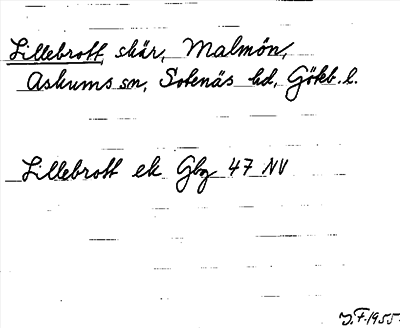 Lillebrott, skär, Malmön,
Askums sn, Sotenäs hd, Gökb. l.
Lillebrott ek Gbg 47 NV
J.F. 1955.